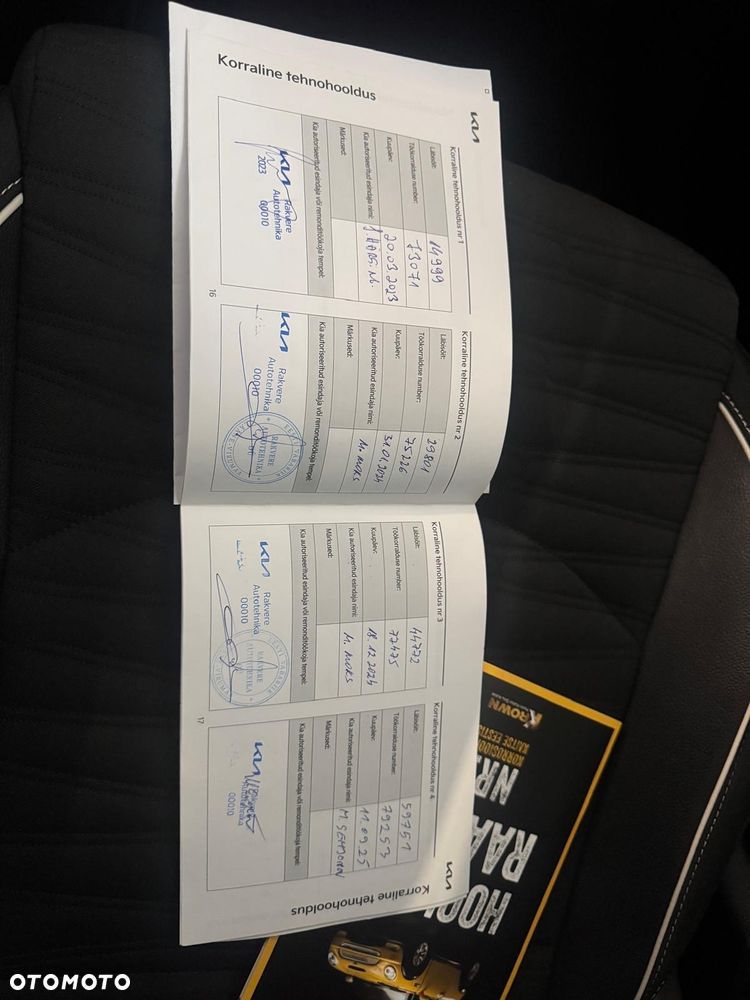 Korraline tehnohooldus
KIA
Korraline tehnohooldus nr 1
Läbisõit: 14999
Töökorralduse number: 73071
Kuupäev: 20.03.2023
Kia autoriseeritud esindaja nimi:
Märkused:
Kia autoriseeritud esindaja või remonditöökoja tempel:
KIA Rakvere
Autotehnika
00010
2023
16
Korraline tehnohooldus nr 2
Läbisõit: 29801
Töökorralduse number: 75226
Kuupäev: 31.01.2024
Kia autoriseeritud esindaja nimi: M. MOKS
Märkused:
Kia autoriseeritud esindaja või remonditöökoja tempel:
KIA Rakvere
Autotehnika
00010
EESTI VABARIIK
RAKVERE
AUTOTEHNIKA
Korraline tehnohooldus nr 3
Läbisõit: 44772
Töökorralduse number: 77475
Kuupäev: 18.12.2024
Kia autoriseeritud esindaja nimi: M. MOKS
Märkused:
Kia autoriseeritud esindaja või remonditöökoja tempel:
KIA Rakvere
Autotehnika
00010
EESTI VABARIIK
RAKVERE
AUTOTEHNIKA
17
Korraline tehnohooldus nr 4
Läbisõit: 59751
Töökorralduse number: 79253
Kuupäev: 11.09.25
Kia autoriseeritud esindaja nimi:
Märkused:
Kia autoriseeritud esindaja või remonditöökoja tempel:
KIA Rakvere
Autotehnika
00010
KIA
Korraline tehnohooldus
KROWN
NR.
RAA
HOOL
OTOMOTO